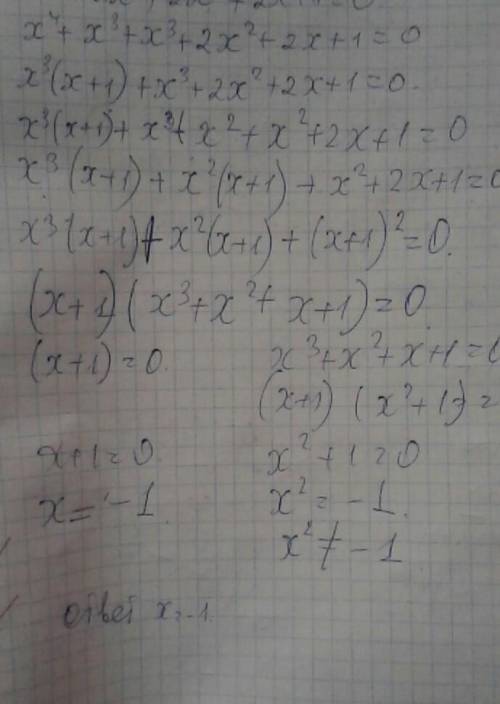 x⁴ + x³ + x³ + 2x² + 2x + 1 = 0
x³(x+1) + x³ + 2x² + 2x + 1 = 0.
x³(x+1) + x³ + x² + x² + 2x + 1 = 0
x³(x+1) + x²(x+1) + x² + 2x + 1 = 0
x³(x+1) + x²(x+1) + (x+1)² = 0.
(x+1)(x³ + x² + x + 1) = 0
(x+1) = 0. x³ + x² + x + 1 = 0
(x+1) (x² + 1) =
x + 1 = 0 x² + 1 = 0
x = -1. x² = -1.
x² ≠ -1
ответ x = -1.